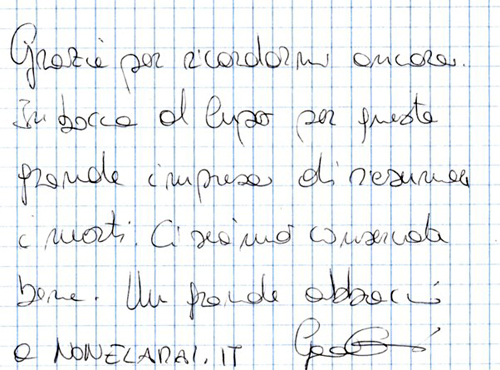 Grazie per ricordarmi ancora.
In bocca al lupo per questa
grande impresa di riesumare
i morti. Ci siamo conservati
bene. Un grande abbraccio
a NONELARAI.IT